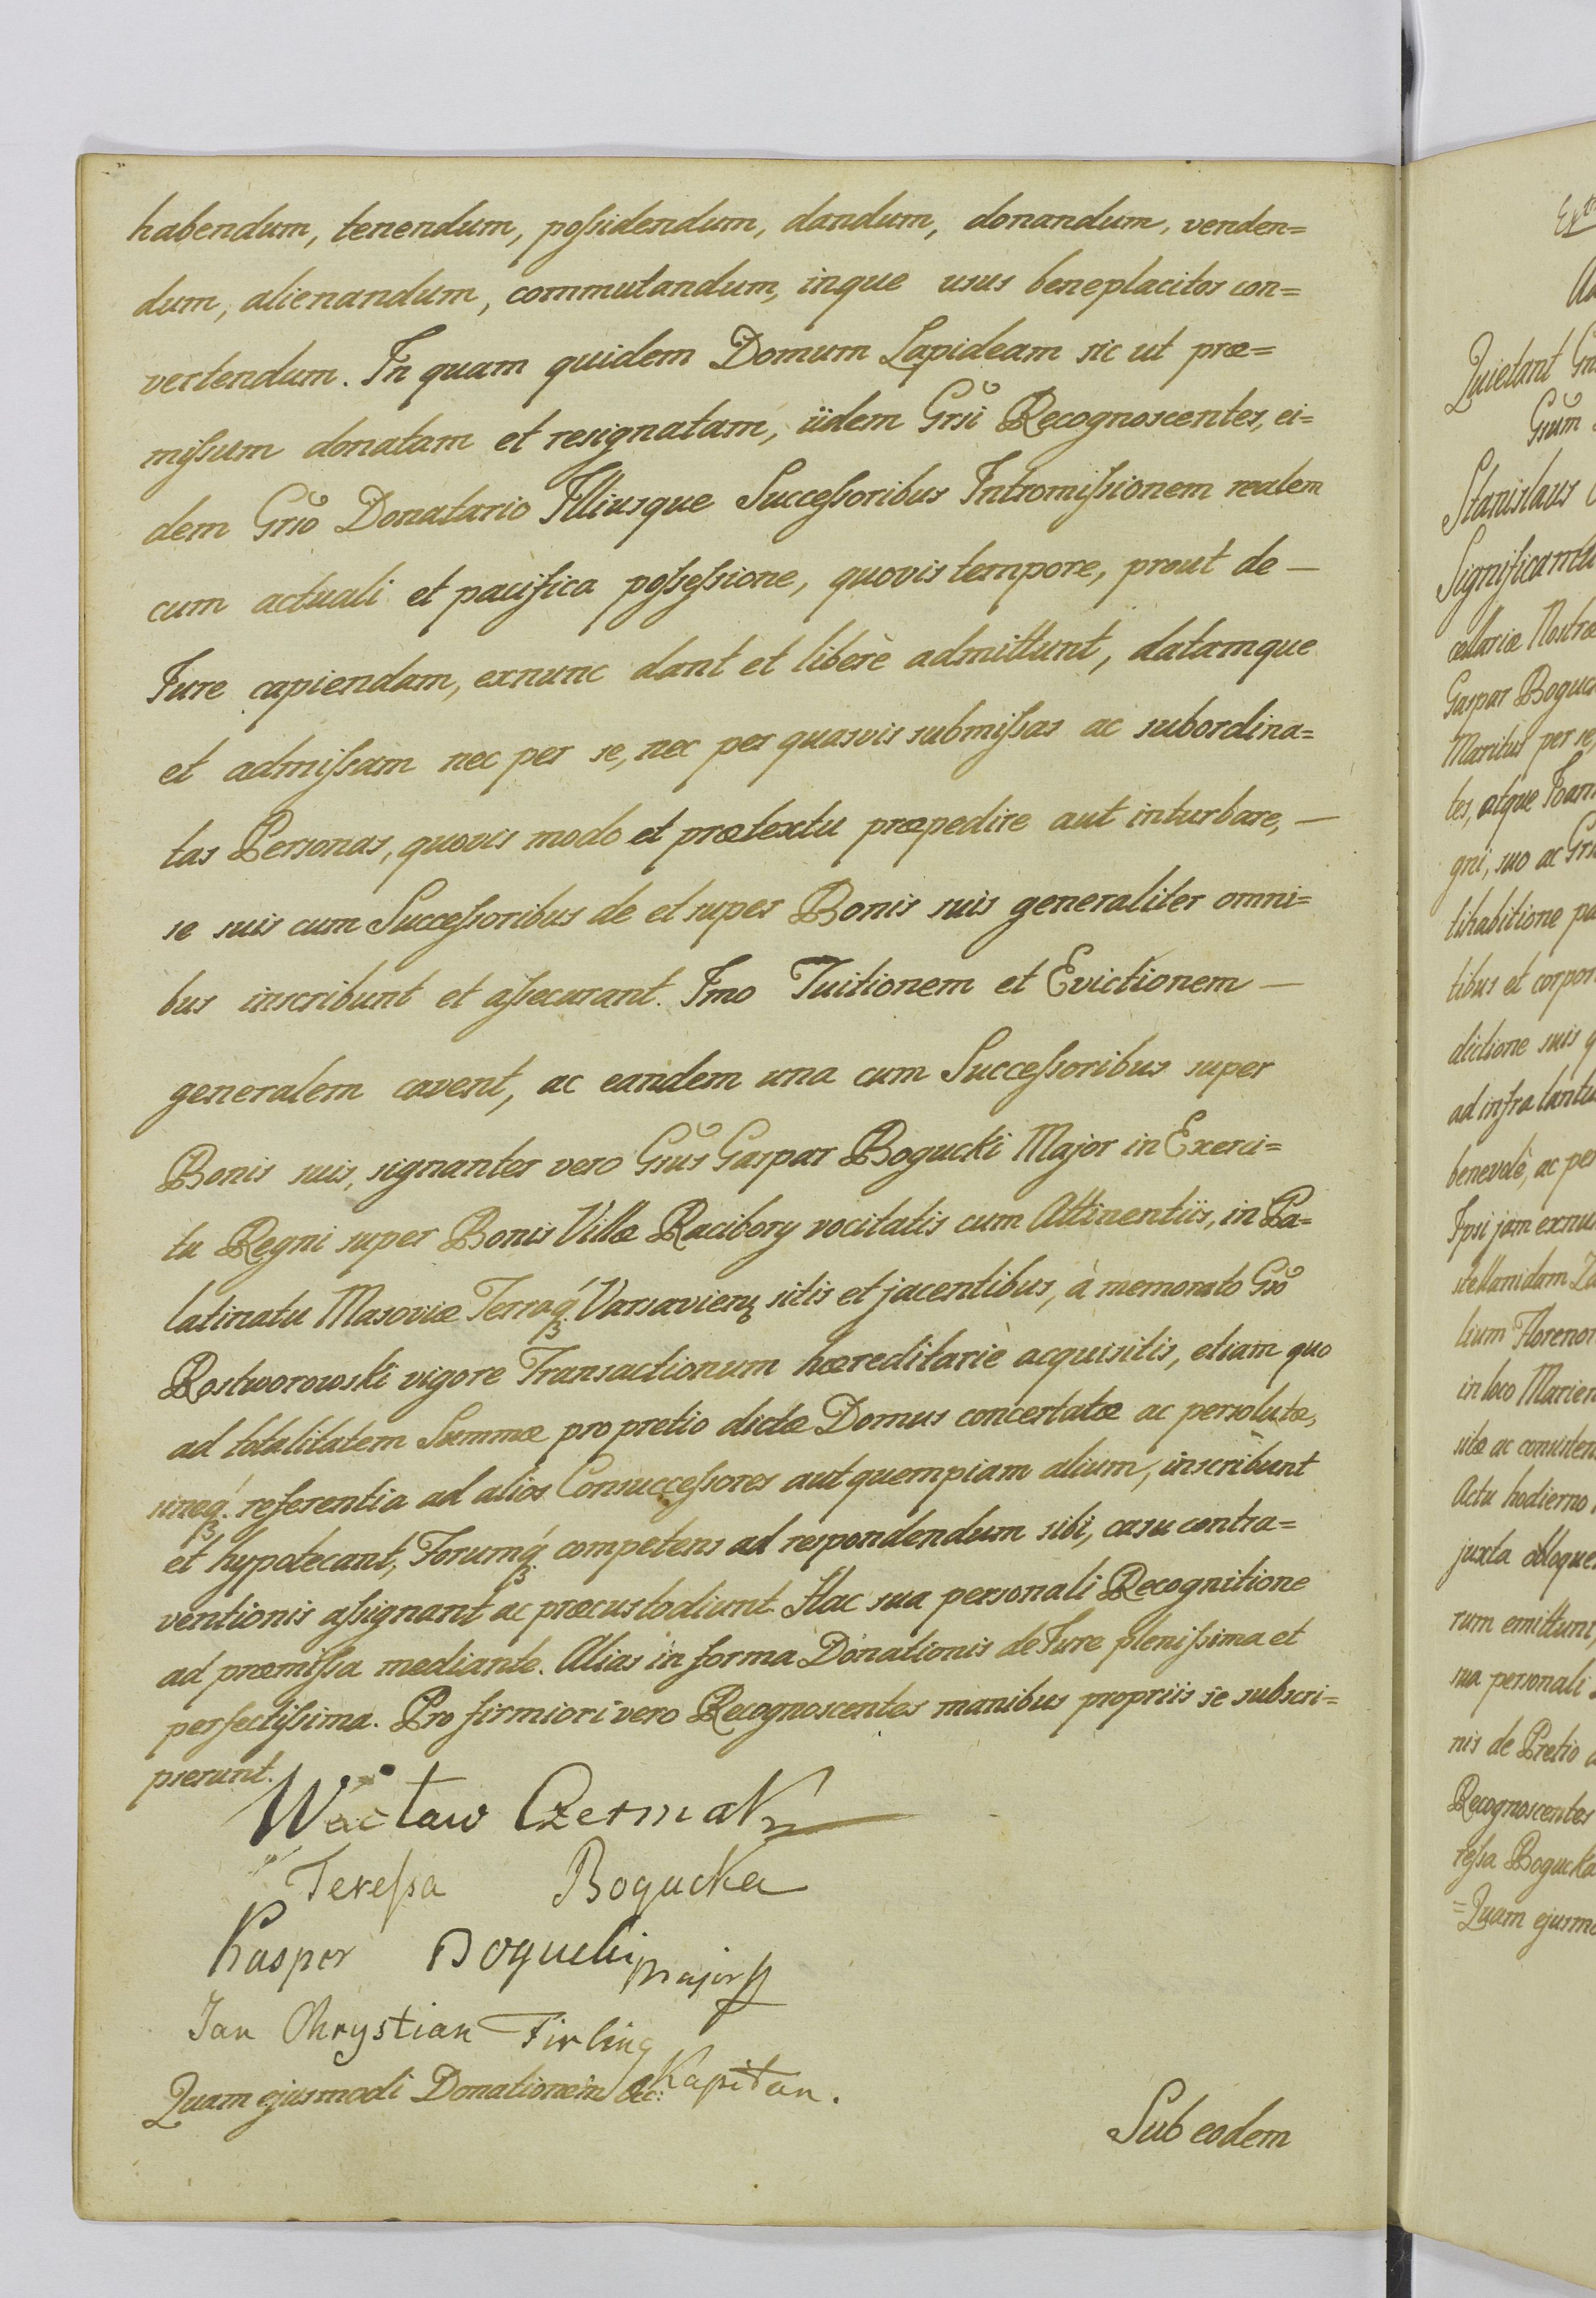 habendum, tenendum, poſsidendum, dandum, donandum, venden=
dum, alienandum, commutandum, inque usus beneplacitos con=
vertendum. In quam quidem Domum Lapideam sic ut præ=
miſsum donatam et resignatam, iidem Grsi Recognoscentes, ei=
dem Grso Donatario Illiusque Succeſsoribus Intromiſsionem realem
cum actuali et pacifica poſseſsione, quovis tempore, prout de —
Jure capiendam, exnunc dant et liberè admittunt, datamque
et admiſsam nec per se, nec per quasvis submiſsas ac subordina=
tas Personas, quovis modo et prætextu præpedire aut inturbare, —
se suis cum Succeſsoribus de et super Bonis suis generaliter omni=
bus inscribunt et aſsecurant. Imo Tuitionem et Evictionem —
generalem cavent, ac eandem una cum Succeſsoribus super
Bonis suis, signanter vero Grsus Gaspar Bogucki Major in Exerci=
tu Regni super Bonis Villæ Racibory vocitatis cum Attinentiis, in Pa=
latinatu Masoviæ Terraq́ꝫ Varsavien̄ sitis et jacentibus, à memorato Gso
Rostworowski vigore Transactionum hæreditariè acquisitis, etiam quo
ad totalitatem Summæ pro pretio dictæ Domus concertatæ ac persolutæ,
sineq́ꝫ referentia ad alios Consucceſsores aut quempiam alium, inscribunt
et hypotecant, Forumq́ꝫ competens ad respondendum sibi, casu contra=
ventionis aſsignant ac præcustodiunt. Hac sua personali Recognitione
ad præmiſsa mediante. Alias in forma Donationis de Jure pleniſsima et
perfectiſsima. Pro firmiori vero Recognoscentes manibus propriis se subscri=
pserunt.
Wacław Czermak
Tereſsa Bogucka
Kasper Bogucki Major
Jan Chrystian Firling
Kapitan.
Quam ejusmodi Donationem &c:
Sub eodem
Quietant
Stanislaus
cellariæ Nostræ
Maritus per se,
tes, atque
gni, suo ac
tibus et
dictione suis
ad infra
benevolè, ac
Ipsi jam
in loco
sitæ ac
Actu hodierno
juxta
rum emittunt,
sua personali
nis de Pretio
Recognoscentes
reſsa Bogucka
=Quam